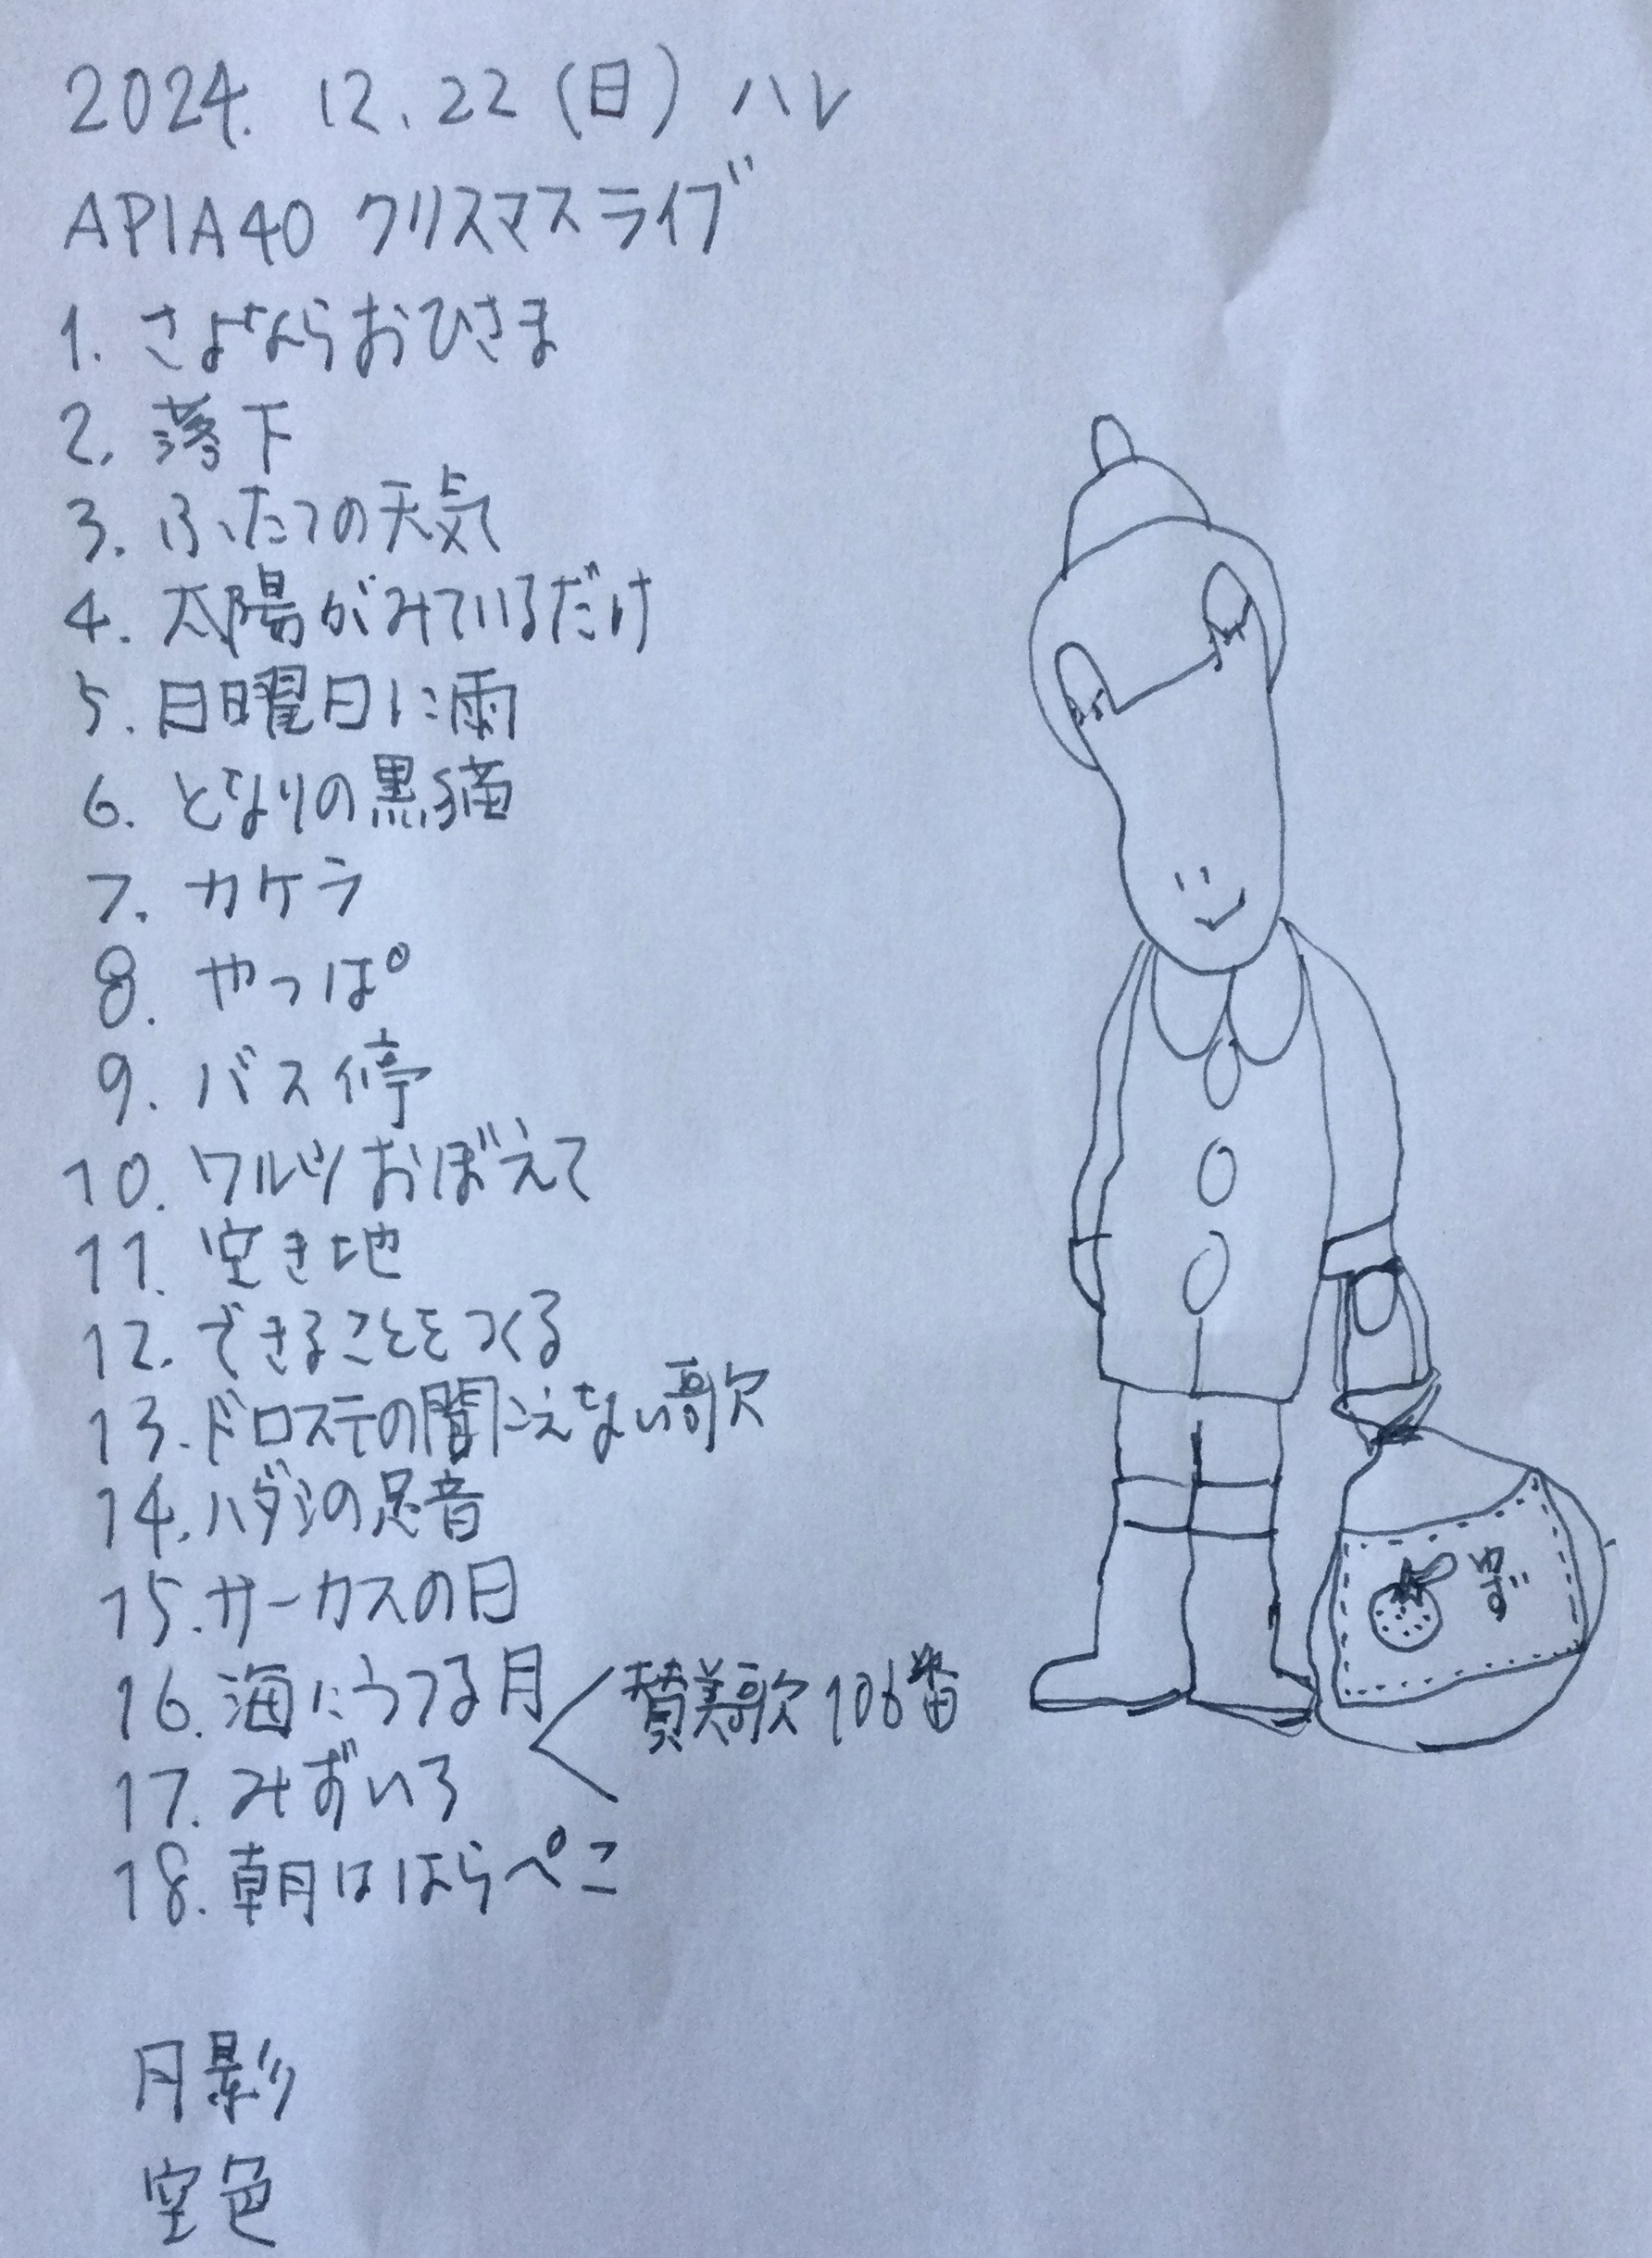 2024. 12. 22 (日) ハレ
APIA40 クリスマスライブ
1. さよならおひさま
2. 落下
3. ふたつの天気
4. 太陽がみているだけ
5. 日曜日に雨
6. となりの黒猫
7. カケラ
8. やっぱ
9. バス停
10. ワルツおぼえて
11. 空き地
12. できることをつくる
13. ドロステの聞こえない歌
14. ハダシの足音
15. サーカスの日
16. 海にうつる月
賛美歌106番
17. みずいろ
18. 朝ははらぺこ
月影
空色
ゆず